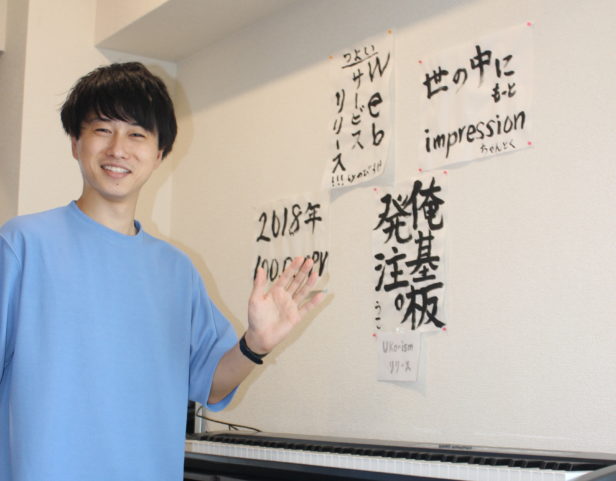 つよい
Webサービス
リリース!!!
世の中に
もっと
impression
ちゃんとく
2018年
俺基板
発注。
うこ
UKo-ism
リリース